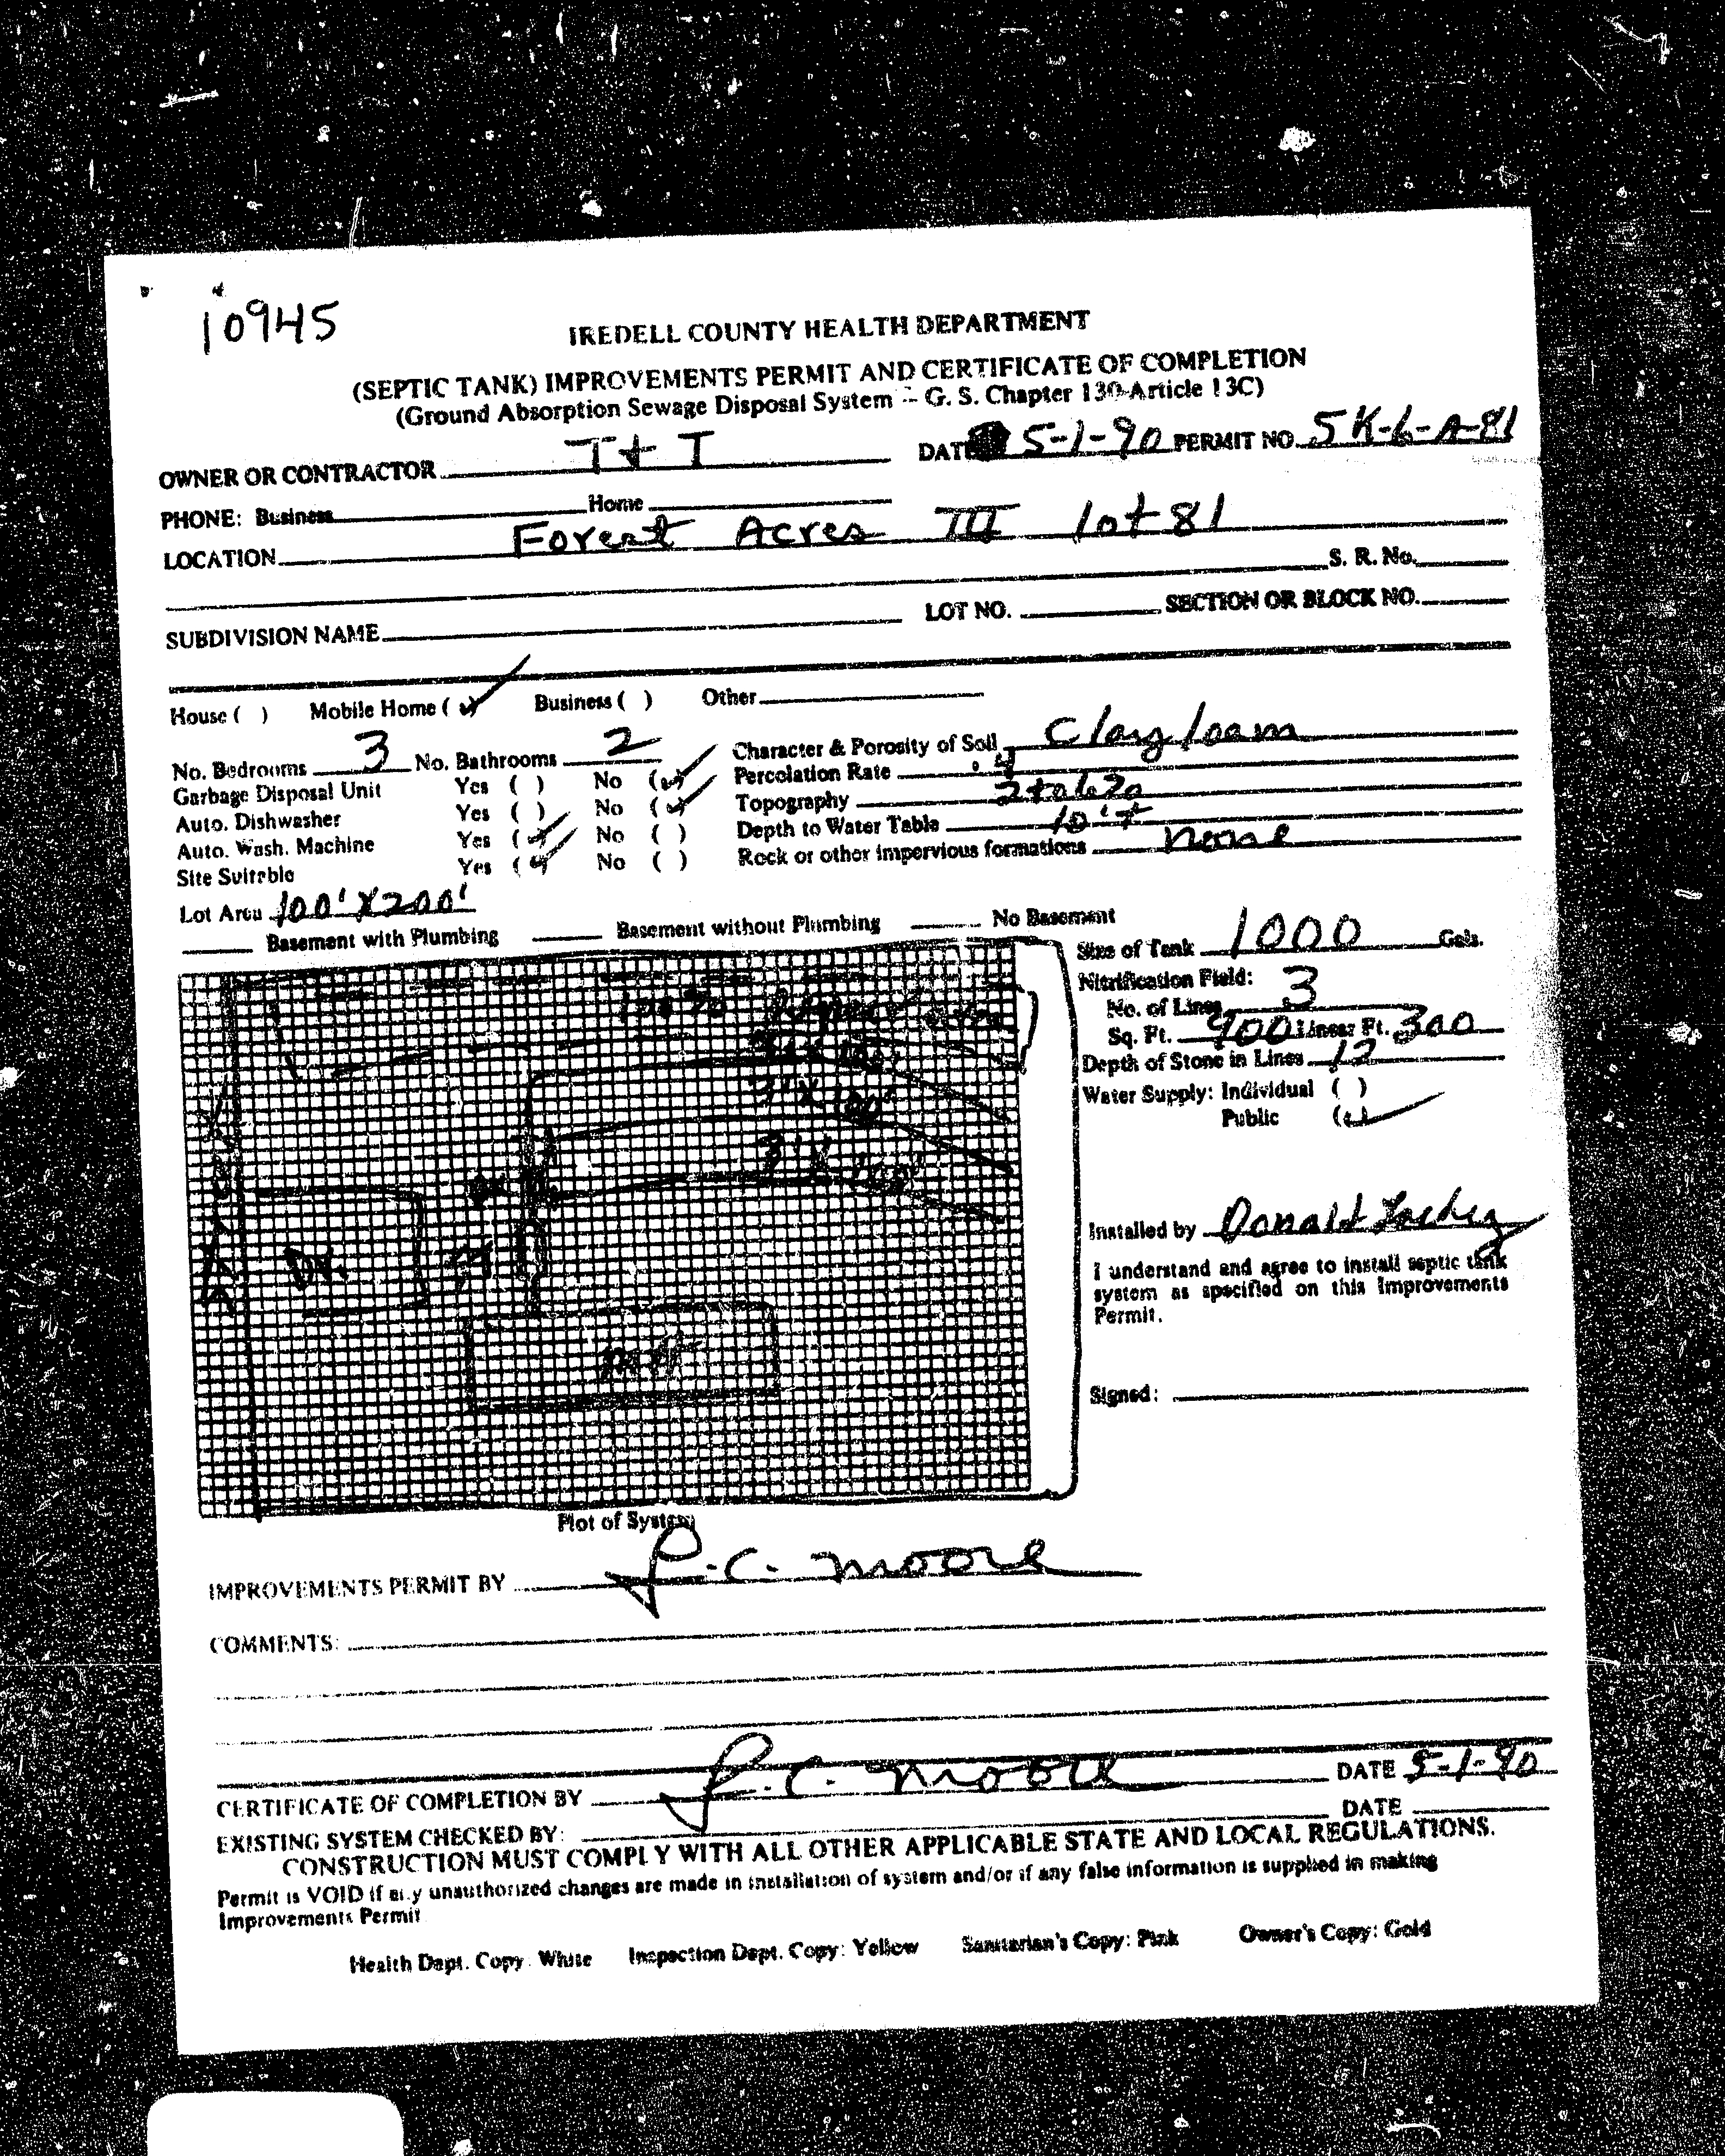 10945
IREDELL COUNTY HEALTH DEPARTMENT
(SEPTIC TANK) IMPROVEMENTS PERMIT AND CERTIFICATE OF COMPLETION
(Ground Absorption Sewage Disposal System -- G. S. Chapter 130-Article 13C)
OWNER OR CONTRACTOR T + T DATE 5-1-90 PERMIT NO. 5K-6-A-81
PHONE: Business Home
LOCATION Forest Acres III lot 81
S. R. No.
SUBDIVISION NAME LOT NO. SECTION OR BLOCK NO.
House ( ) Mobile Home (✓) Business ( ) Other
No. Bedrooms 3 No. Bathrooms 2 Character & Porosity of Soil Clay loam
Garbage Disposal Unit Yes ( ) No (✓) Percolation Rate .4
Auto. Dishwasher Yes ( ) No (✓) Topography 2 to 6%
Auto. Wash. Machine Yes (✓) No ( ) Depth to Water Table 10'+
Site Suitable Yes (✓) No ( ) Rock or other impervious formations none
Lot Area 100' X 200'
Basement with Plumbing Basement without Plumbing No Basement
Size of Tank 1000 Gals.
Nitrification Field:
No. of Lines 3
Sq. Ft. 900 Linear Ft. 300
Depth of Stone in Lines 12
Water Supply: Individual ( )
Public (✓)
100% Repair area
3' X 100'
3' X 100'
3' X 100'
Dr.
Installed by Donald
I understand and agree to install septic tank
system as specified on this Improvements
Permit.
Signed:
Plot of System
IMPROVEMENTS PERMIT BY J.C. Moore
COMMENTS:
CERTIFICATE OF COMPLETION BY J.C. Moore DATE 5-1-90
EXISTING SYSTEM CHECKED BY: DATE
CONSTRUCTION MUST COMPLY WITH ALL OTHER APPLICABLE STATE AND LOCAL REGULATIONS.
Permit is VOID if any unauthorized changes are made in installation of system and/or if any false information is supplied in making
Improvements Permit
Health Dept. Copy: White Inspection Dept. Copy: Yellow Sanitarian's Copy: Pink Owner's Copy: Gold